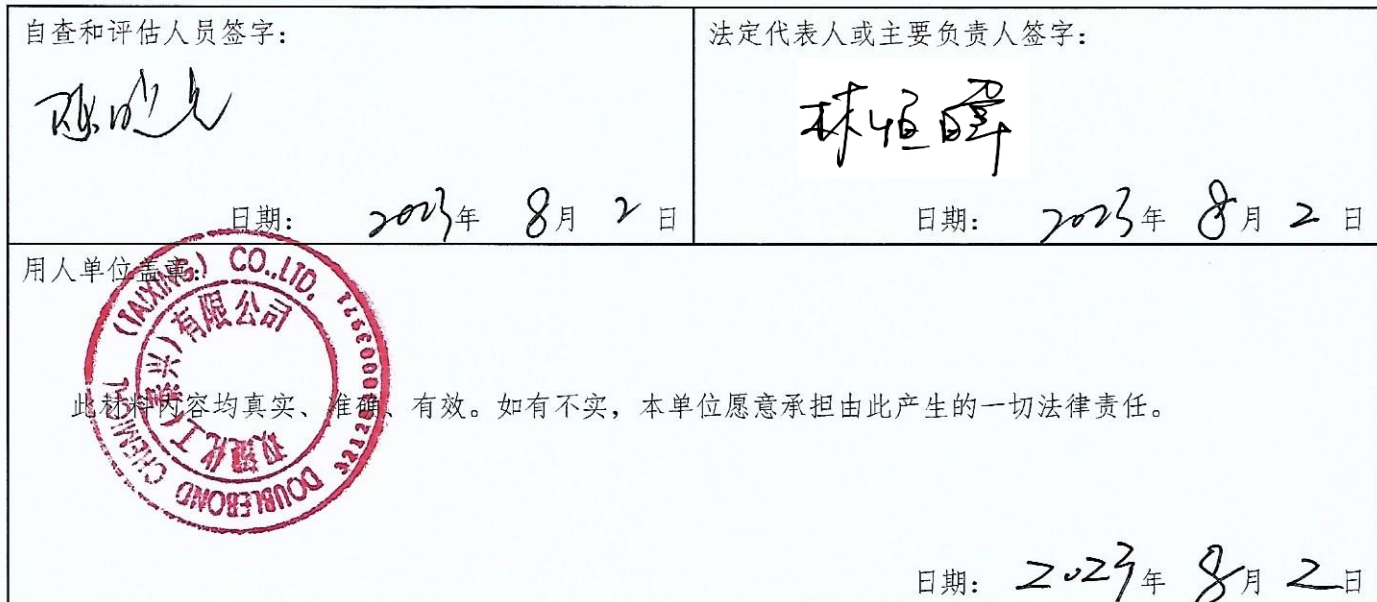 自查和评估人员签字:
法定代表人或主要负责人签字:
林恒暐
日期: 2023年 8月 2日
日期: 2023年 8月 2日
用人单位盖章:
DOUBLEBOND CHEMICAL (TAIXING) CO.,LTD.
双键化工(泰兴)有限公司
此材料内容均真实、准确、有效。如有不实,本单位愿意承担由此产生的一切法律责任。
日期: 2023年 8月 2日